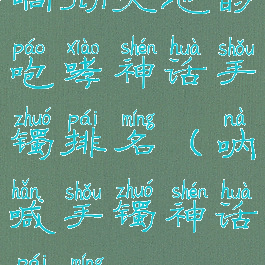 páo xiào shén huà shǒu
咆哮神话手
zhuó pái míng nà
镯排名(呐
hǎn shǒu zhuó shén huà
喊手镯神话
pái míng